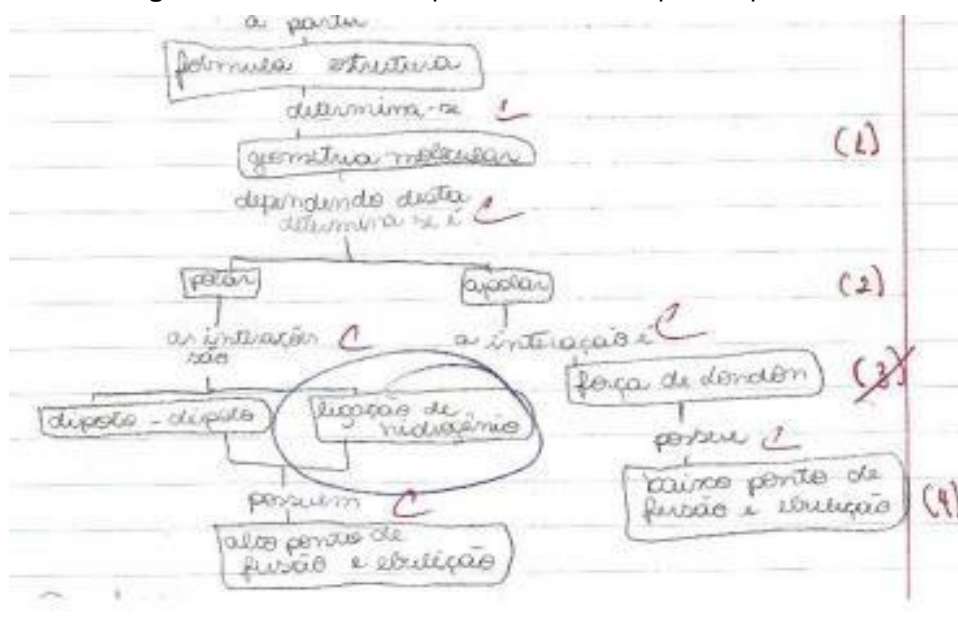 a partir
fórmula estrutura
determina-se
geometria molecular
(1)
dependendo desta
determina se é
polar
apolar
(2)
as interações
são
a interação é
dipolo - dipolo
ligação de
hidrogênio
força de London
(3)
possuem
possui
alto ponto de
fusão e ebulição
baixo ponto de
fusão e ebulição
(4)